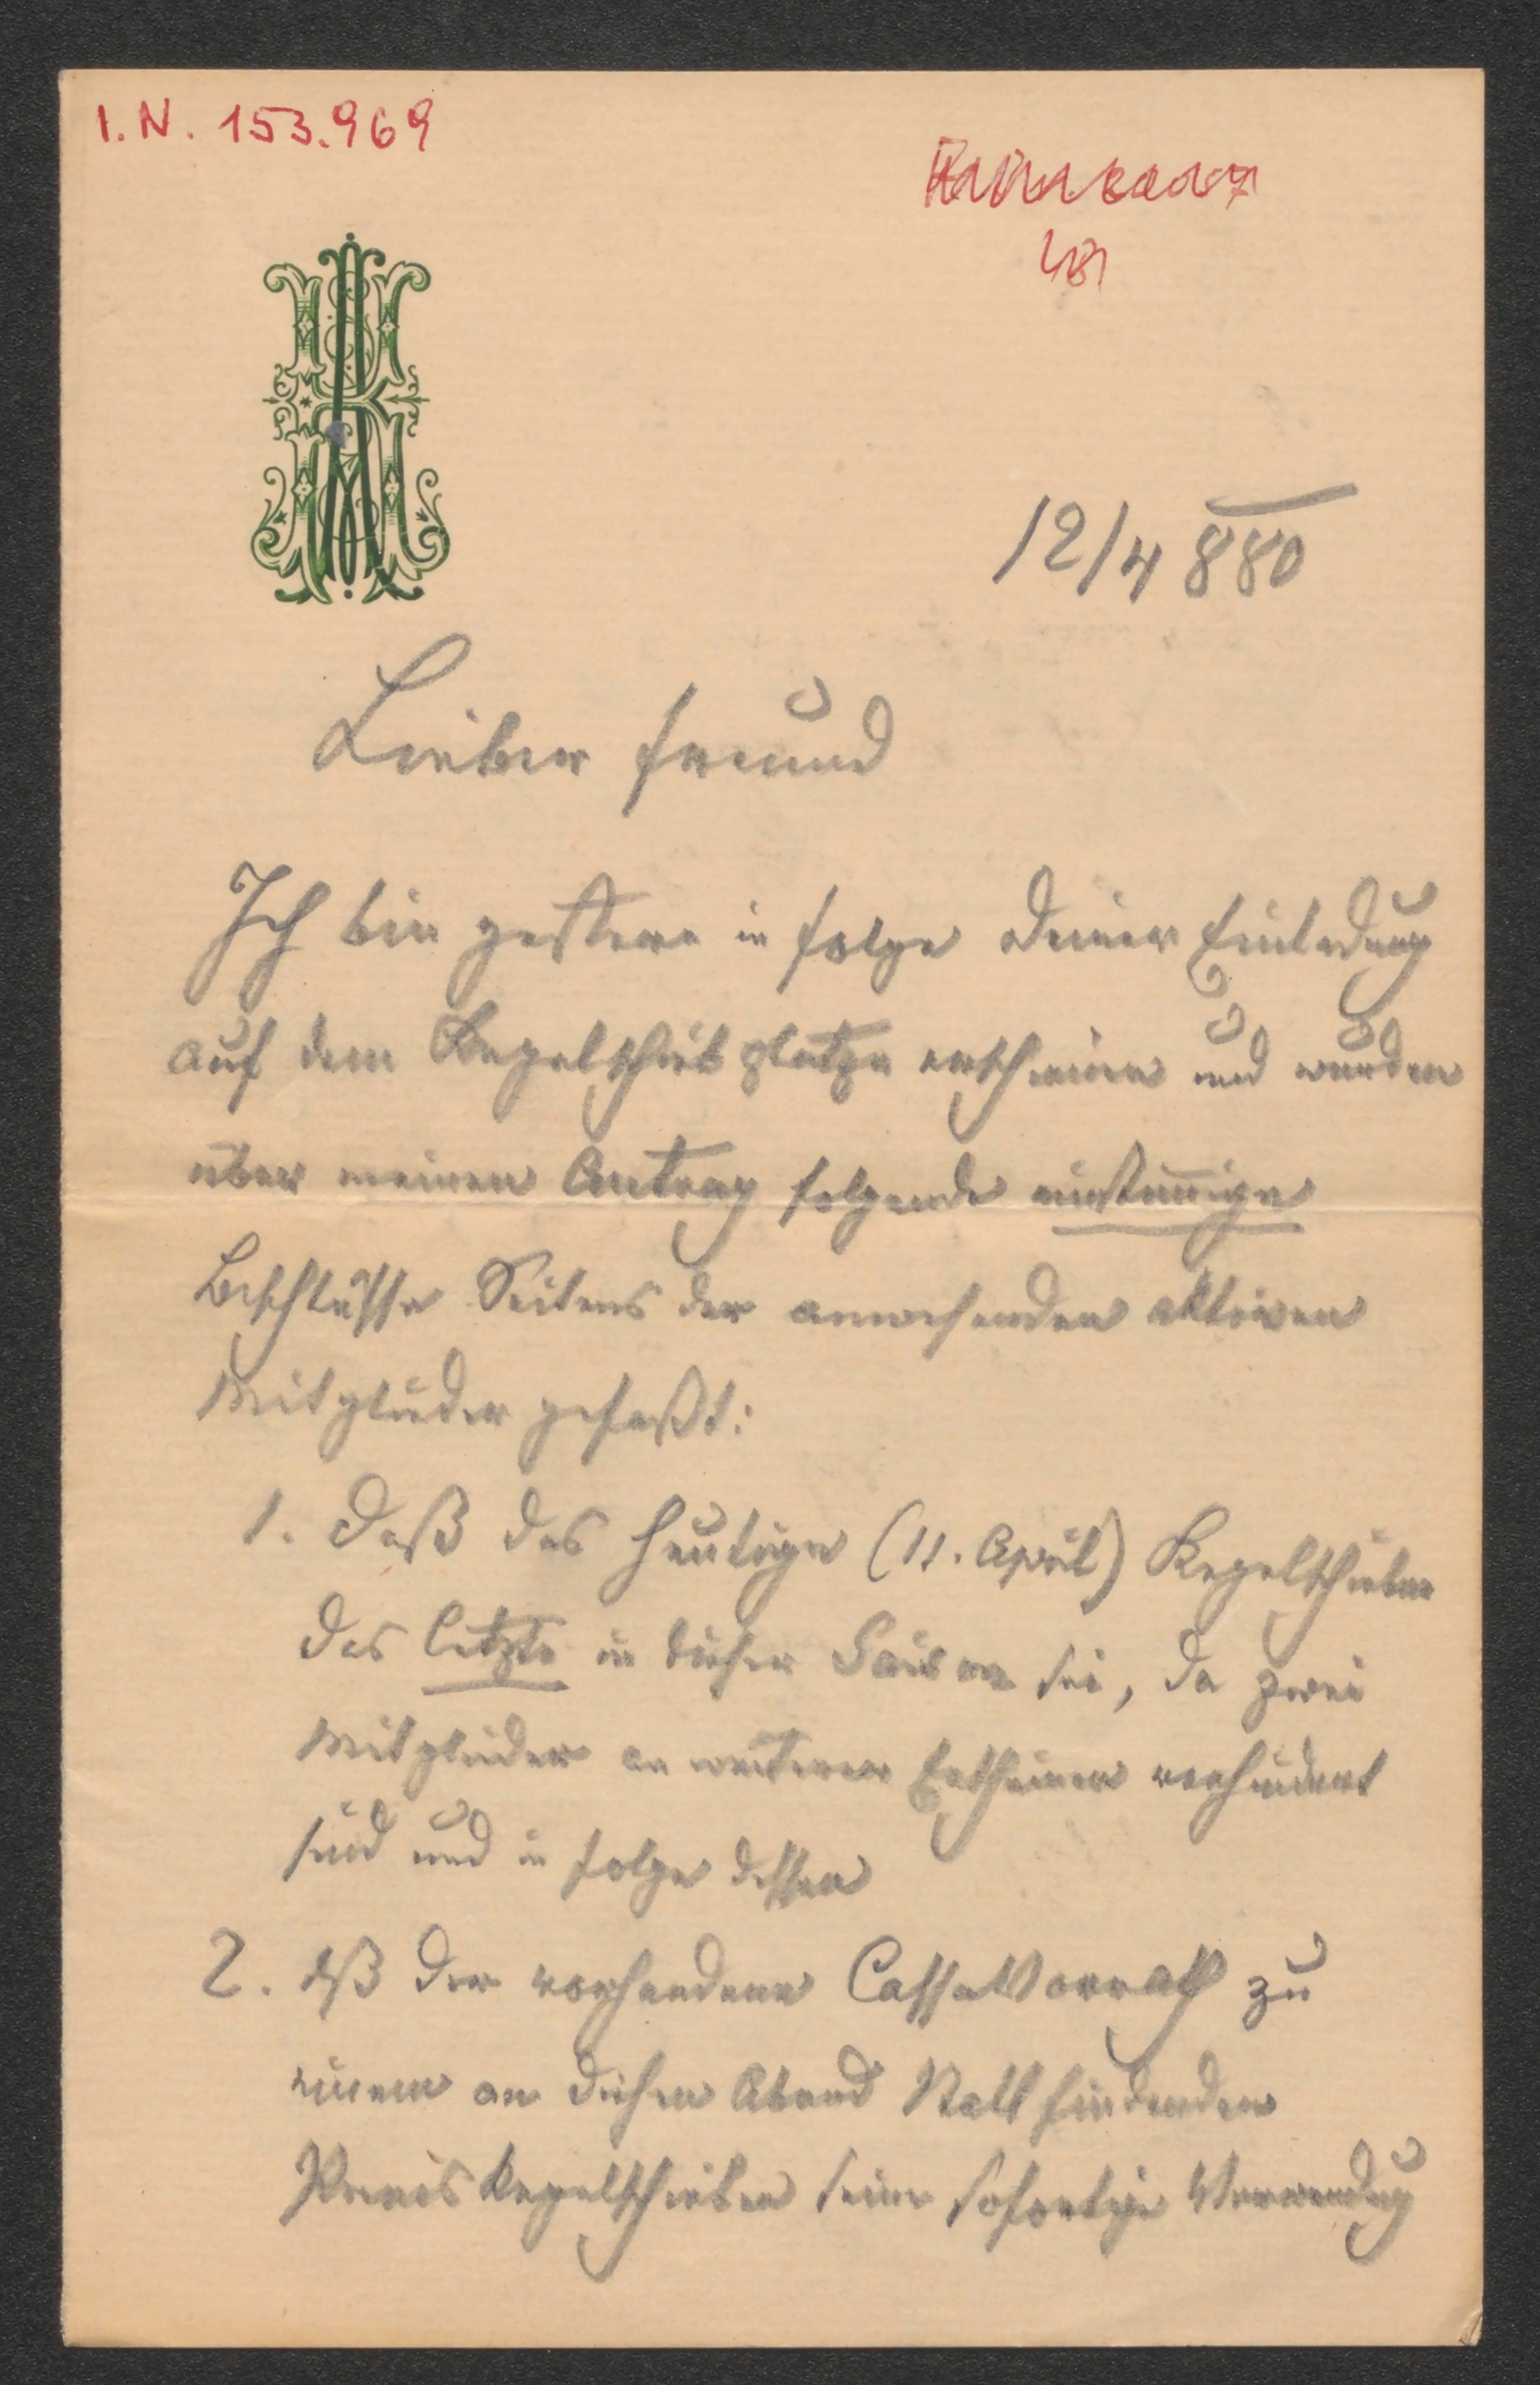 I.N. 153.969
12/4 880
Lieber Freund
Ich bin gestern in Folge Deiner Einladung
auf dem Kegelschiebplatze erschienen und wurden
über meinen Antrag folgende einstimmige
Beschlüsse Seitens der anwesenden aktiven
Mitglieder gefaßt:
1. Daß das heutige (11. April) Kegelschieben
das letzte in dieser Saison sei, da zwei
Mitglieder an weiterem Erscheinen verhindert
sind und in Folge dessen
2. daß der vorhandene Cassa Vorrath zu
einem an diesem Abend Statt findenden
Preis Kegelschieben seine sofortige Verwendung